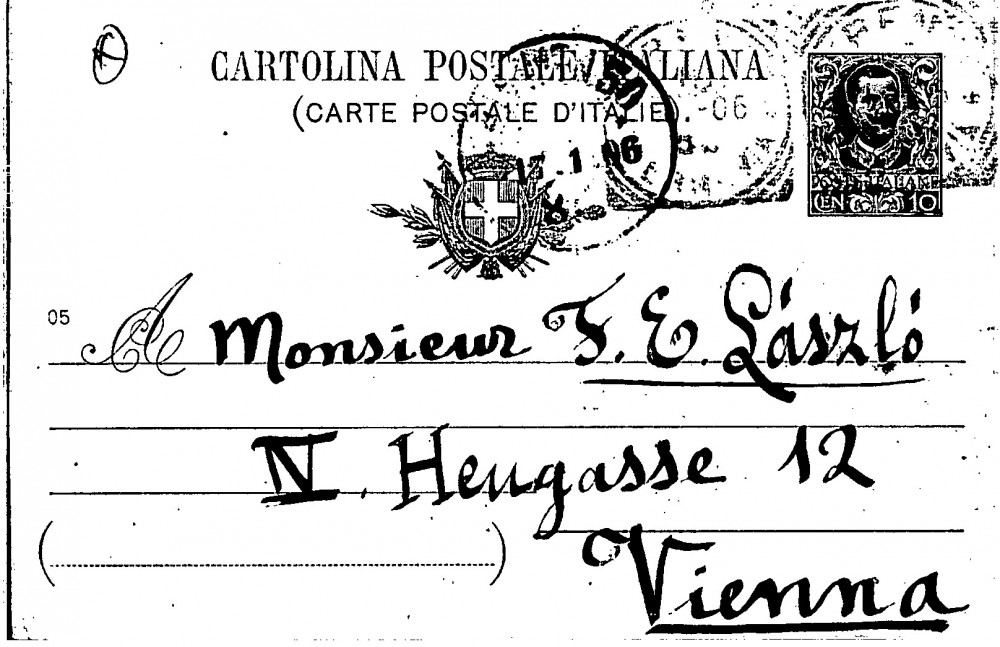 CARTOLINA POSTALE ITALIANA
(CARTE POSTALE D'ITALIE).
-06
1 06
POSTE ITALIANE
CEN 10
05
A Monsieur F. E. László
IV. Heugasse 12
Vienna